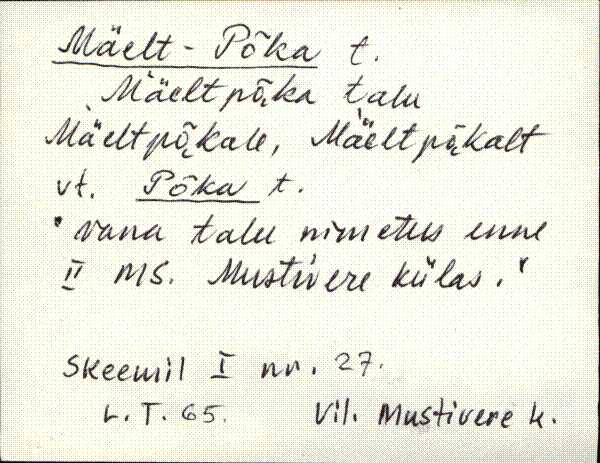 Mäelt-Põka t.
Mäeltpõ̜ka talu
Mäeltpõ̜kale, Mäeltpõ̜kalt
vt. Põka t.
"vana talu nimetus enne
II MS. Mustivere külas."
Skeemil I nr. 27.
L.T. 65. Vil. Mustivere k.